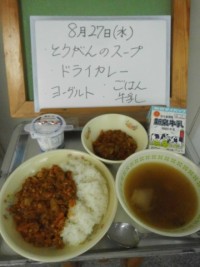 8月27日(水)
とうがんのスープ
ドライカレー
ヨーグルト ごはん
牛乳
牛乳